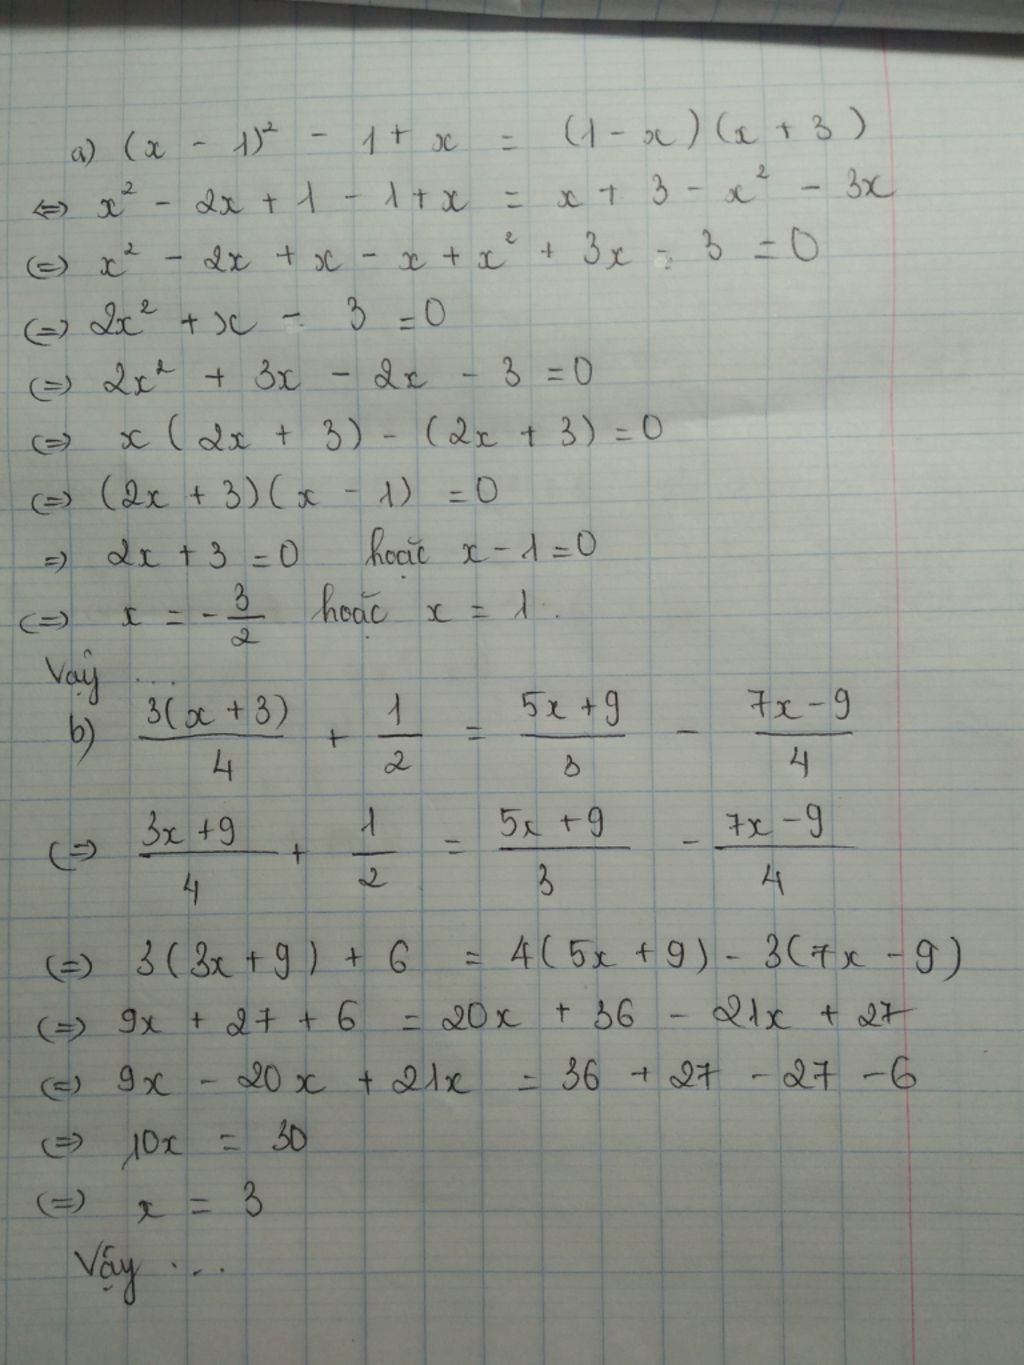 a) (x - 1)² - 1 + x = (1 - x)(x + 3)
<=> x² - 2x + 1 - 1 + x = x + 3 - x² - 3x
<=> x² - 2x + x - x + x² + 3x - 3 = 0
<=> 2x² + x - 3 = 0
<=> 2x² + 3x - 2x - 3 = 0
<=> x(2x + 3) - (2x + 3) = 0
<=> (2x + 3)(x - 1) = 0
=> 2x + 3 = 0 hoặc x - 1 = 0
<=> x = -3/2 hoặc x = 1.
Vậy ...
b) 3(x + 3)/4 + 1/2 = (5x + 9)/3 - (7x - 9)/4
<=> (3x + 9)/4 + 1/2 = (5x + 9)/3 - (7x - 9)/4
<=> 3(3x + 9) + 6 = 4(5x + 9) - 3(7x - 9)
<=> 9x + 27 + 6 = 20x + 36 - 21x + 27
<=> 9x - 20x + 21x = 36 + 27 - 27 - 6
<=> 10x = 30
<=> x = 3
Vậy ...